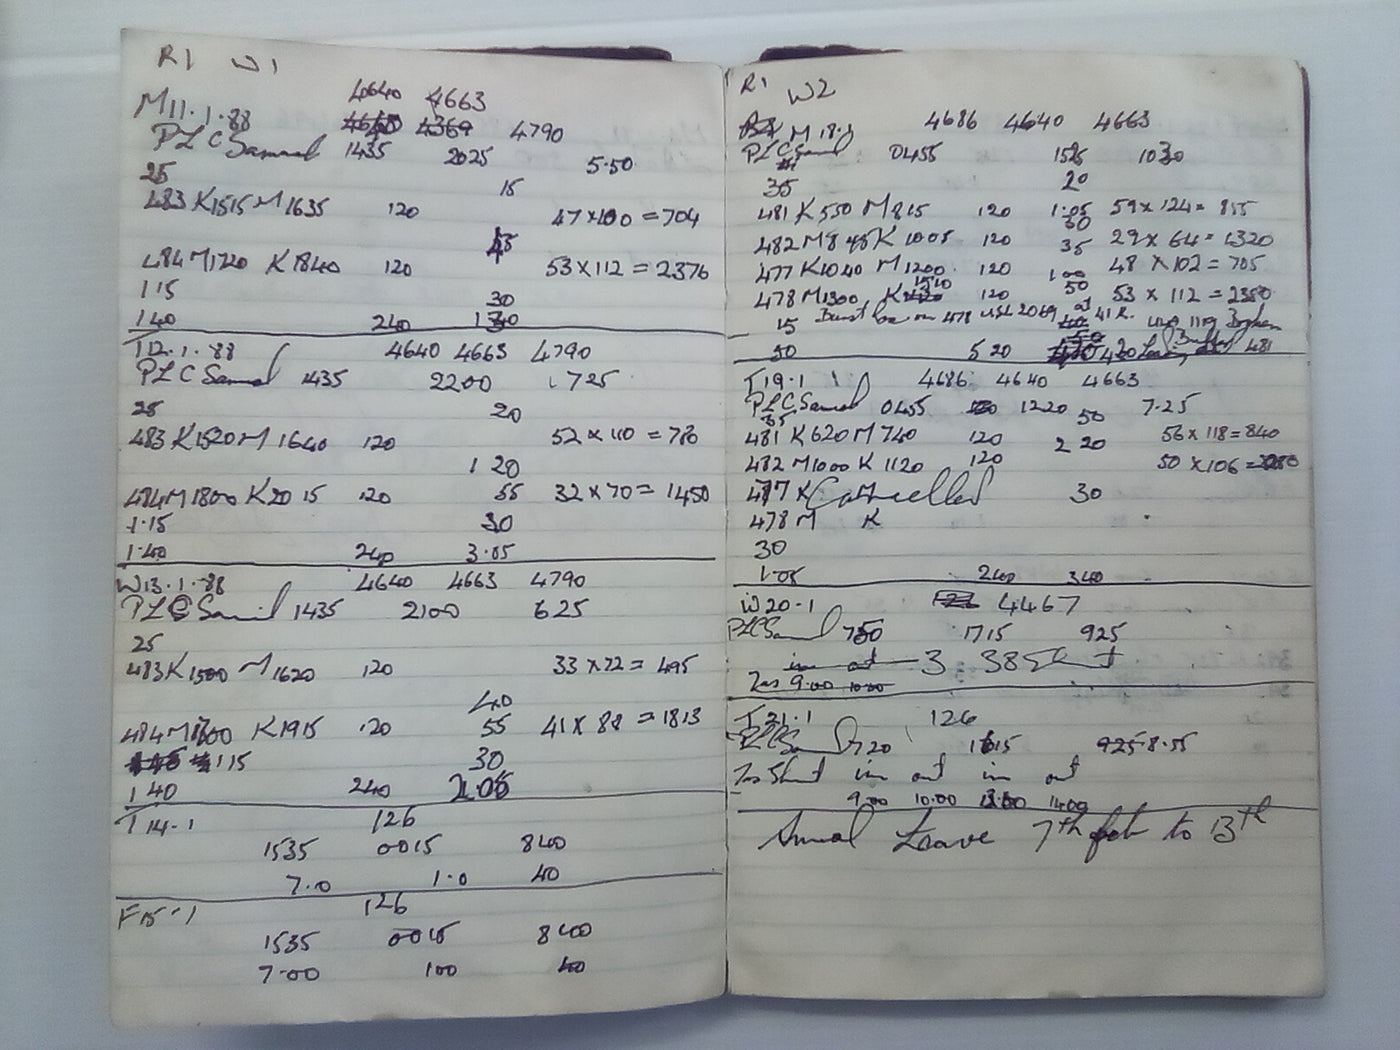 R1 W1
4640 4663
M11.1.88 4790
PLC Samuel 1435 2025 5.50
25 15
483 K1515 M1635 120 47×100 = 704
45
484 M1720 K1840 120 53×112 = 2376
115 30
140 240 130
T12.1.88 4640 4663 4790
PLC Samuel 1435 2200 1725
25 20
483 K1520 M1640 120 52×110 = 780
1 20
484 M1800 K2015 120 55 32×70 = 1450
1.15 30
1.40 240 3.05
W13.1.88 4640 4663 4790
PLC Samuel 1435 2100 625
25
483 K1500 M1620 120 33×72 = 495
40
484 M1800 K1915 120 55 41×88 = 1813
115 30
140 240 2.05
T14.1 126
1535 0015 840
7.0 1.0 40
F15.1 126
1535 0015 840
7.00 100 40
R1 W2
M 18.1 4686 4640 4663
PLC Samuel 0455 1525 1030
35 20
481 K550 M815 120 1.05 59×124 = 855
30
482 M845 K1005 120 35 29×64 = 1320
477 K1040 M1200 120 100 48×102 = 705
1510 50
478 M1300 K 120 53×112 = 2350
15 on 478 2069 at 41 R.
50 520 420 481
T19.1 4686 4640 4663
PLC Samuel 0455 1220 50 7.25
35
481 K620 M740 120 2 20 56×118 = 840
482 M1000 K1120 120 50×106 =
477 K Cancelled 30
478 M K
30
1.05 240 340
W20.1 4467
PLC Samuel 750 1715 925
in out 3 38 Shunt
Ins 9.00 10.00
T21.1 126
PLC Samuel 720 1615 925 8.55
Ins Shunt in out in out
9.00 10.00 13.00 1400
Annual Leave 7th feb to 13th